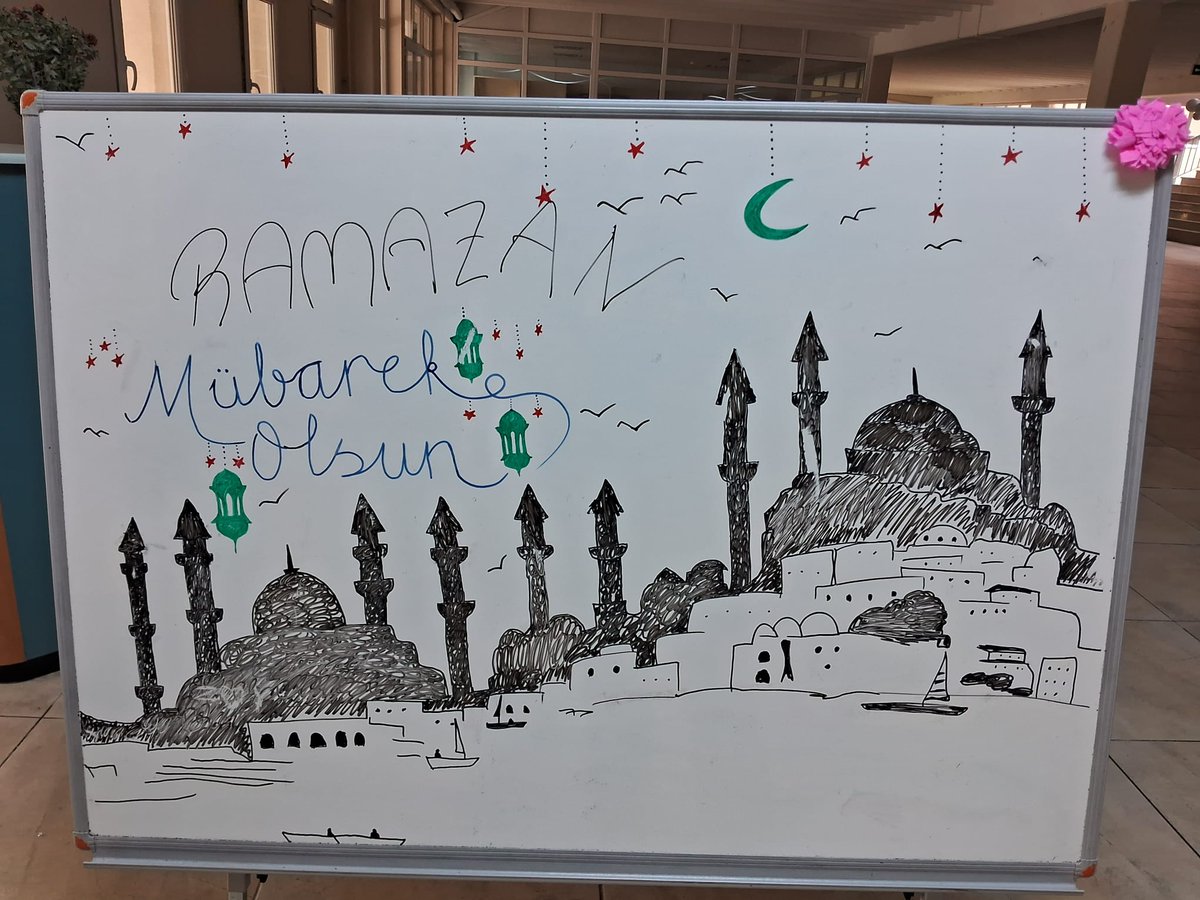 RAMAZAN
Mübarek
Olsun